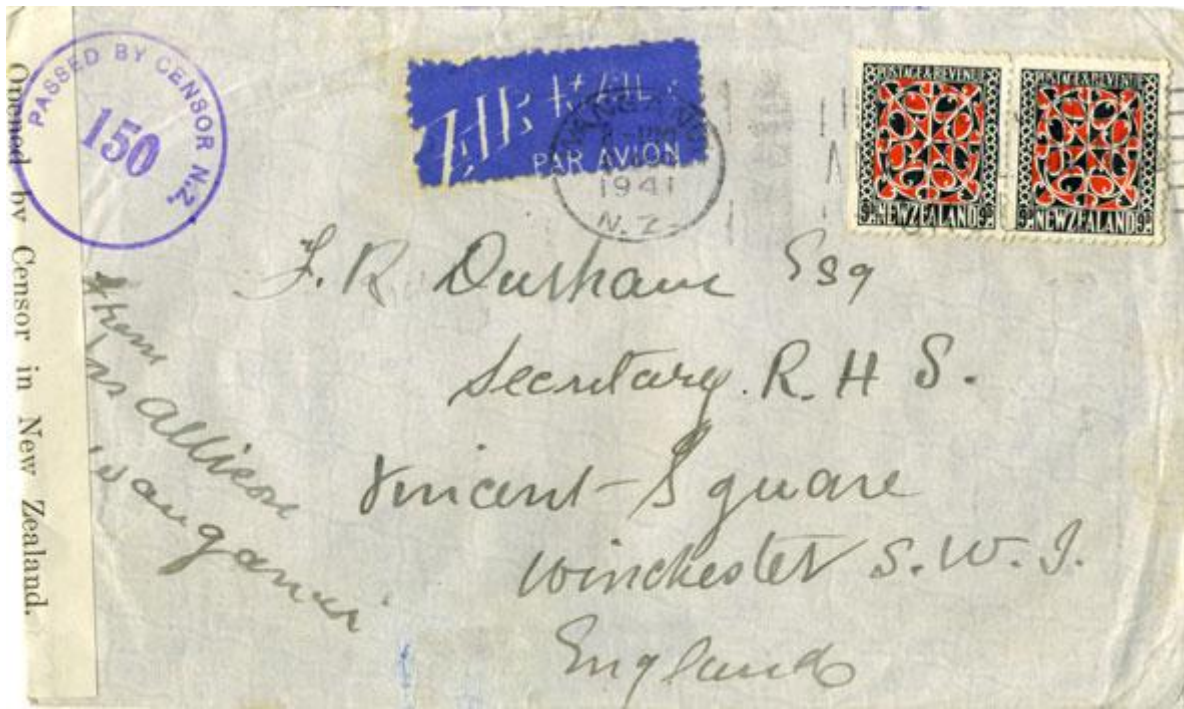 Opened by Censor in New Zealand.
PASSED BY CENSOR N.Z.
150
AIR MAIL
PAR AVION
1941
N.Z.
POSTAGE & REVENUE
9D NEW ZEALAND 9D
POSTAGE & REVENUE
9D NEW ZEALAND 9D
F. R. Durham Esq
Secretary. R. H S.
Vincent-Square
Winchester S. W. I.
England
Allison
Wanganui